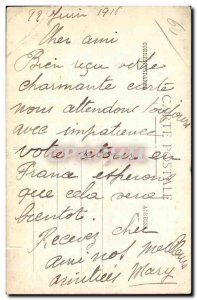 22 Juin 1916
Cher ami
Bien reçu votre
charmante carte
nous attendons toujours
avec impatience
votre retour en
France esperons
que cela sera
bientot.
Recevez cher
ami nos meilleurs
amitiées Mary
CARTE POSTALE
CORRESPONDANCE
ADRESSE